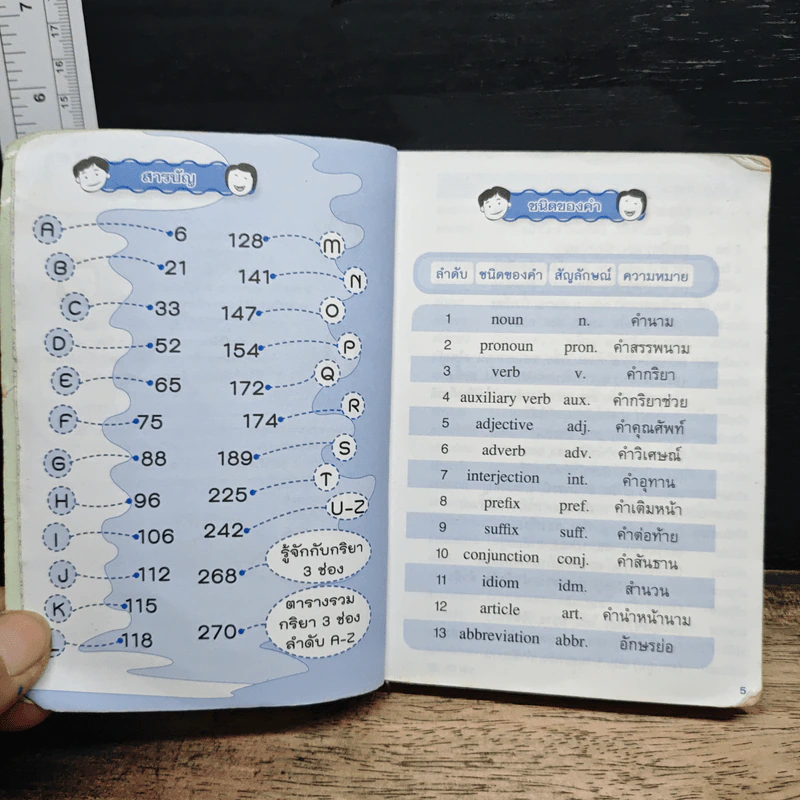 7
17
16
6
15
สารบัญ
A 6
B 21
C 33
D 52
E 65
F 75
G 88
H 96
I 106
J 112
K 115
L 118
128 M
141 N
147 O
154 P
172 Q
174 R
189 S
225 T
242 U-Z
268 รู้จักกับกริยา
3 ช่อง
270 ตารางรวม
กริยา 3 ช่อง
ลำดับ A-Z
ชนิดของคำ
ลำดับ ชนิดของคำ สัญลักษณ์ ความหมาย
1 noun n. คำนาม
2 pronoun pron. คำสรรพนาม
3 verb v. คำกริยา
4 auxiliary verb aux. คำกริยาช่วย
5 adjective adj. คำคุณศัพท์
6 adverb adv. คำวิเศษณ์
7 interjection int. คำอุทาน
8 prefix pref. คำเติมหน้า
9 suffix suff. คำต่อท้าย
10 conjunction conj. คำสันธาน
11 idiom idm. สำนวน
12 article art. คำนำหน้านาม
13 abbreviation abbr. อักษรย่อ
5